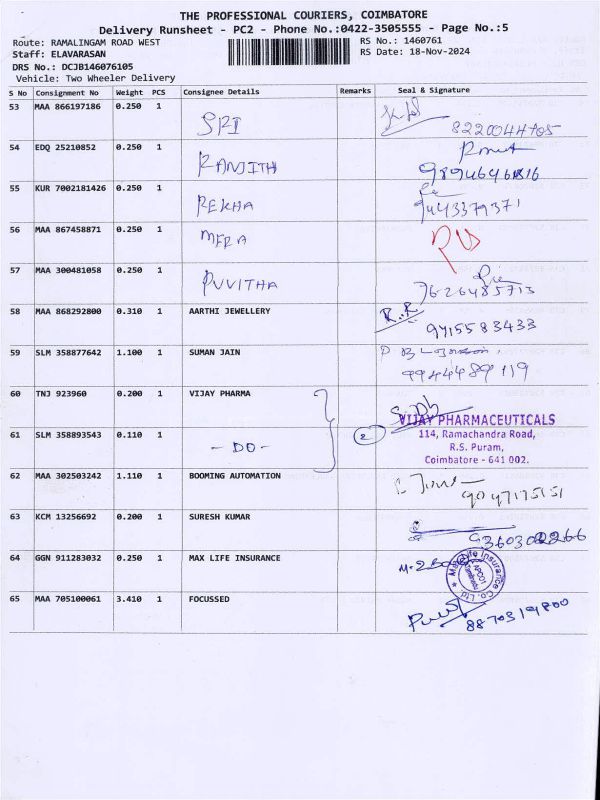 THE PROFESSIONAL COURIERS, COIMBATORE
Delivery Runsheet - PC2 - Phone No.:0422-3505555 - Page No.:5
Route: RAMALINGAM ROAD WEST RS No.: 1460761
Staff: ELAVARASAN RS Date: 18-Nov-2024
DRS No.: DCJB146076105
Vehicle: Two Wheeler Delivery
S No Consignment No Weight PCS Consignee Details Remarks Seal & Signature
53 MAA 866197186 0.250 1 SRI
54 EDQ 25210852 0.250 1 RANJITH
55 KUR 7002181426 0.250 1 REKHA 9443379371
56 MAA 867458871 0.250 1 MERA
57 MAA 300481058 0.250 1 PUVITHA 7626485713
58 MAA 868292800 0.310 1 AARTHI JEWELLERY R.R 9715583433
59 SLM 358877642 1.100 1 SUMAN JAIN 9944489119
60 TNJ 923960 0.200 1 VIJAY PHARMA
VIJAY PHARMACEUTICALS
61 SLM 358893543 0.110 1 - DO - 2 114, Ramachandra Road,
R.S. Puram,
Coimbatore - 641 002.
62 MAA 302503242 1.110 1 BOOMING AUTOMATION 9047175151
63 KCM 13256692 0.200 1 SURESH KUMAR
64 GGN 911283032 0.250 1 MAX LIFE INSURANCE
65 MAA 705100061 3.410 1 FOCUSSED 8870319800